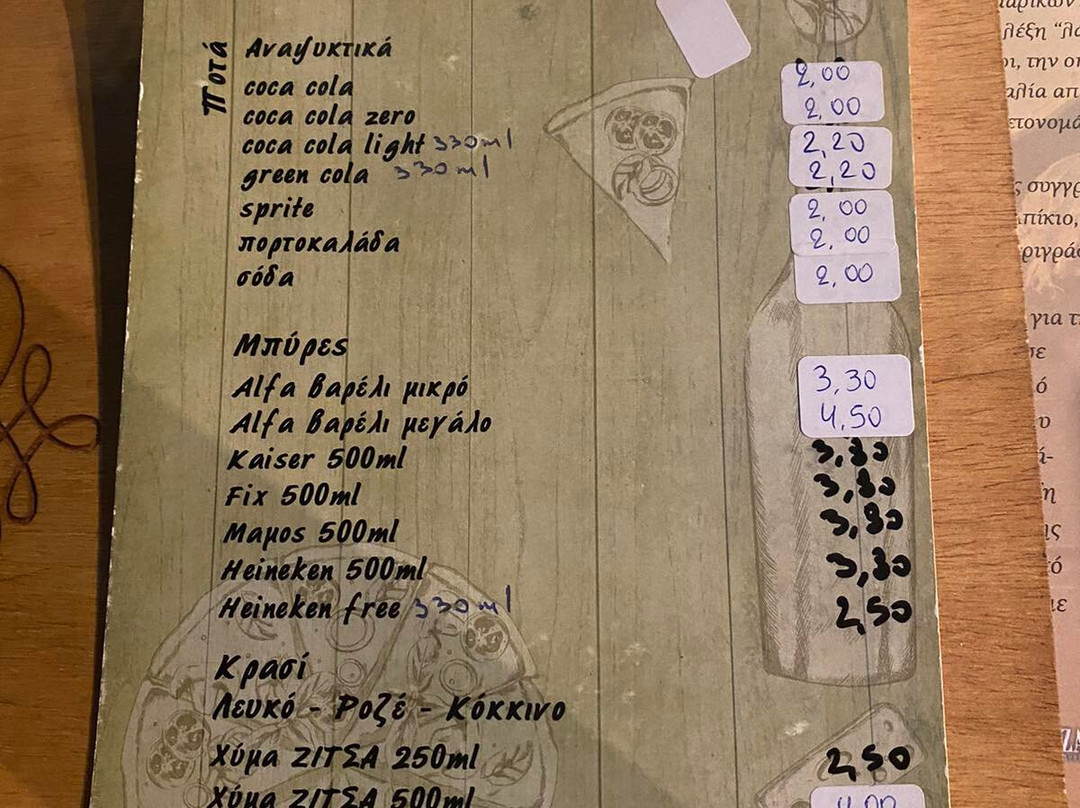 Ποτά
Αναψυκτικά
coca cola 2,00
coca cola zero 2,00
coca cola light 330ml 2,20
green cola 330ml 2,20
sprite 2,00
πορτοκαλάδα 2,00
σόδα 2,00
Μπύρες
Alfa βαρέλι μικρό 3,30
Alfa βαρέλι μεγάλο 4,50
Kaiser 500ml 3,80
Fix 500ml 3,80
Μαμος 500ml 3,80
Heineken 500ml 3,80
Heineken free 330ml 2,50
Κρασί
Λευκό - Ροζέ - Κόκκινο
Χύμα ΖΙΤΣΑ 250ml 2,50
Χύμα ΖΙΤΣΑ 500ml 4,00
λέξη
την
απ
ς συγγρ
πίκιο,
για τ